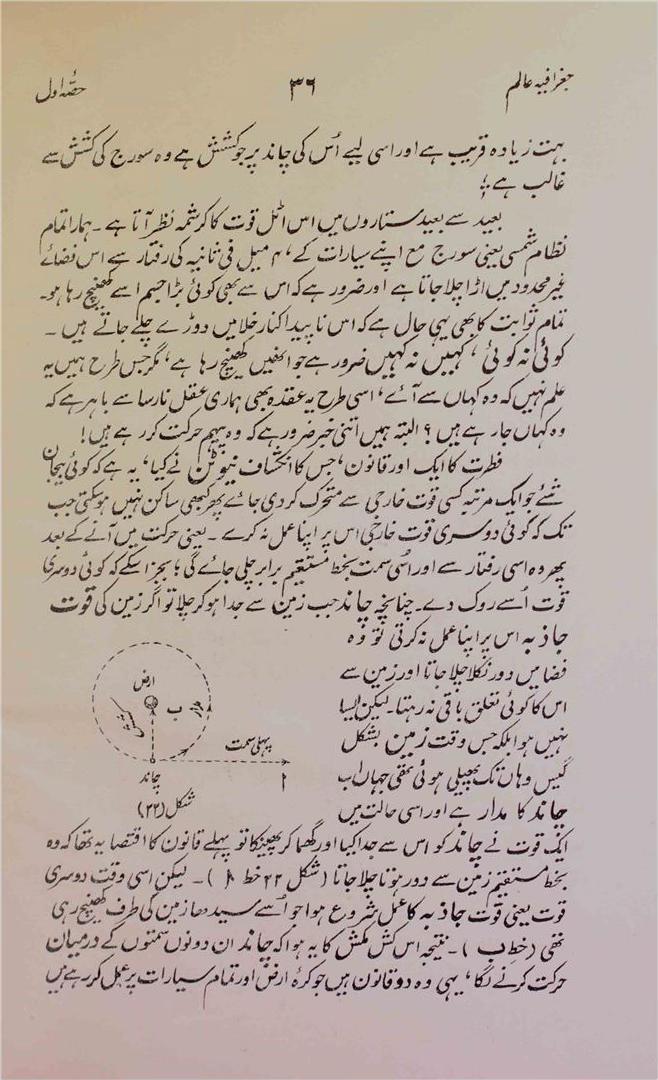 جغرافیہ عالم
۳۶
حصّہ اول
بہت زیادہ قریب ہے اور اسی لیے اُس کی چاند پر جو کشش ہے وہ سورج کی کشش سے
غالب ہے؛
بعید سے بعید ستاروں میں اس اٹل قوت کا کرشمہ نظر آتا ہے ۔ ہمارا تمام
نظام شمسی یعنی سورج مع اپنے سیارات کے، ۴ میل فی ثانیہ کی رفتار سے اس فضائے
غیر محدود میں اڑا چلا جاتا ہے اور ضرور ہے کہ اس سے بھی کوئی بڑا جسم اسے کھینچ رہا ہو۔
تمام ثوابت کا بھی یہی حال ہے کہ اس ناپیدا کنار خلا میں دوڑے چلے جاتے ہیں ۔
کوئی نہ کوئی ، کہیں نہ کہیں ضرور ہے جو انھیں کھینچ رہا ہے، مگر جس طرح ہمیں یہ
علم نہیں کہ وہ کہاں سے آئے، اسی طرح یہ عقدہ بھی ہماری عقل نارسا سے باہر ہے کہ
وہ کہاں جا رہے ہیں ؟ البتہ ہمیں اتنی خبر ضرور ہے کہ وہ پیہم حرکت کر رہے ہیں!
فطرت کا ایک اور قانون، جس کا انکشاف نیوٹن نے کیا، یہ ہے کہ کوئی بیجان
شئے جو ایک مرتبہ کسی قوت خارجی سے متحرک کر دی جائے پھر کبھی ساکن نہیں ہو سکتی جب
تک کہ کوئی دوسری قوت خارجی اس پر اپنا عمل نہ کرے ۔ یعنی حرکت میں آنے کے بعد
پھر وہ اسی رفتار سے اور اسی سمت بخط مستقیم برابر چلی جائے گی؛ بجز اسکے کہ کوئی دوسری
قوت اُسے روک دے۔ چنانچہ چاند جب زمین سے جدا ہو کر چلا تو اگر زمین کی قوت
جاذبہ اس پر اپنا عمل نہ کرتی تو وہ
فضا میں دور نکلا چلا جاتا اور زمین سے
اس کا کوئی تعلق باقی نہ رہتا۔ لیکن ایسا
نہیں ہوا بلکہ جس وقت زمین بشکل
گیس وہاں تک پھیلی ہوئی تھی جہاں اب
چاند کا مدار ہے اور اسی حالت میں
ارض
ب
مدار
کشش
پہلی سمت
چاند
ا
شکل (۲۲)
ایک قوت نے چاند کو اس سے جدا کیا اور گھما کر پھینکا تو پہلے قانون کا اقتضا یہ تھا کہ وہ
بخط مستقیم زمین سے دور ہوتا چلا جاتا (شکل ۲۲ خط ا )۔ لیکن اسی وقت دوسری
قوت یعنی قوت جاذبہ کا عمل شروع ہوا جو اُسے سیدھا زمین کی طرف کھینچ رہی
تھی (خط ب )۔ نتیجہ اس کش مکش کا یہ ہوا کہ چاند ان دونوں سمتوں کے درمیان
حرکت کرنے لگا، یہی وہ دو قانون ہیں جو کرۂ ارض اور تمام سیارات پر عمل کر رہے ہیں